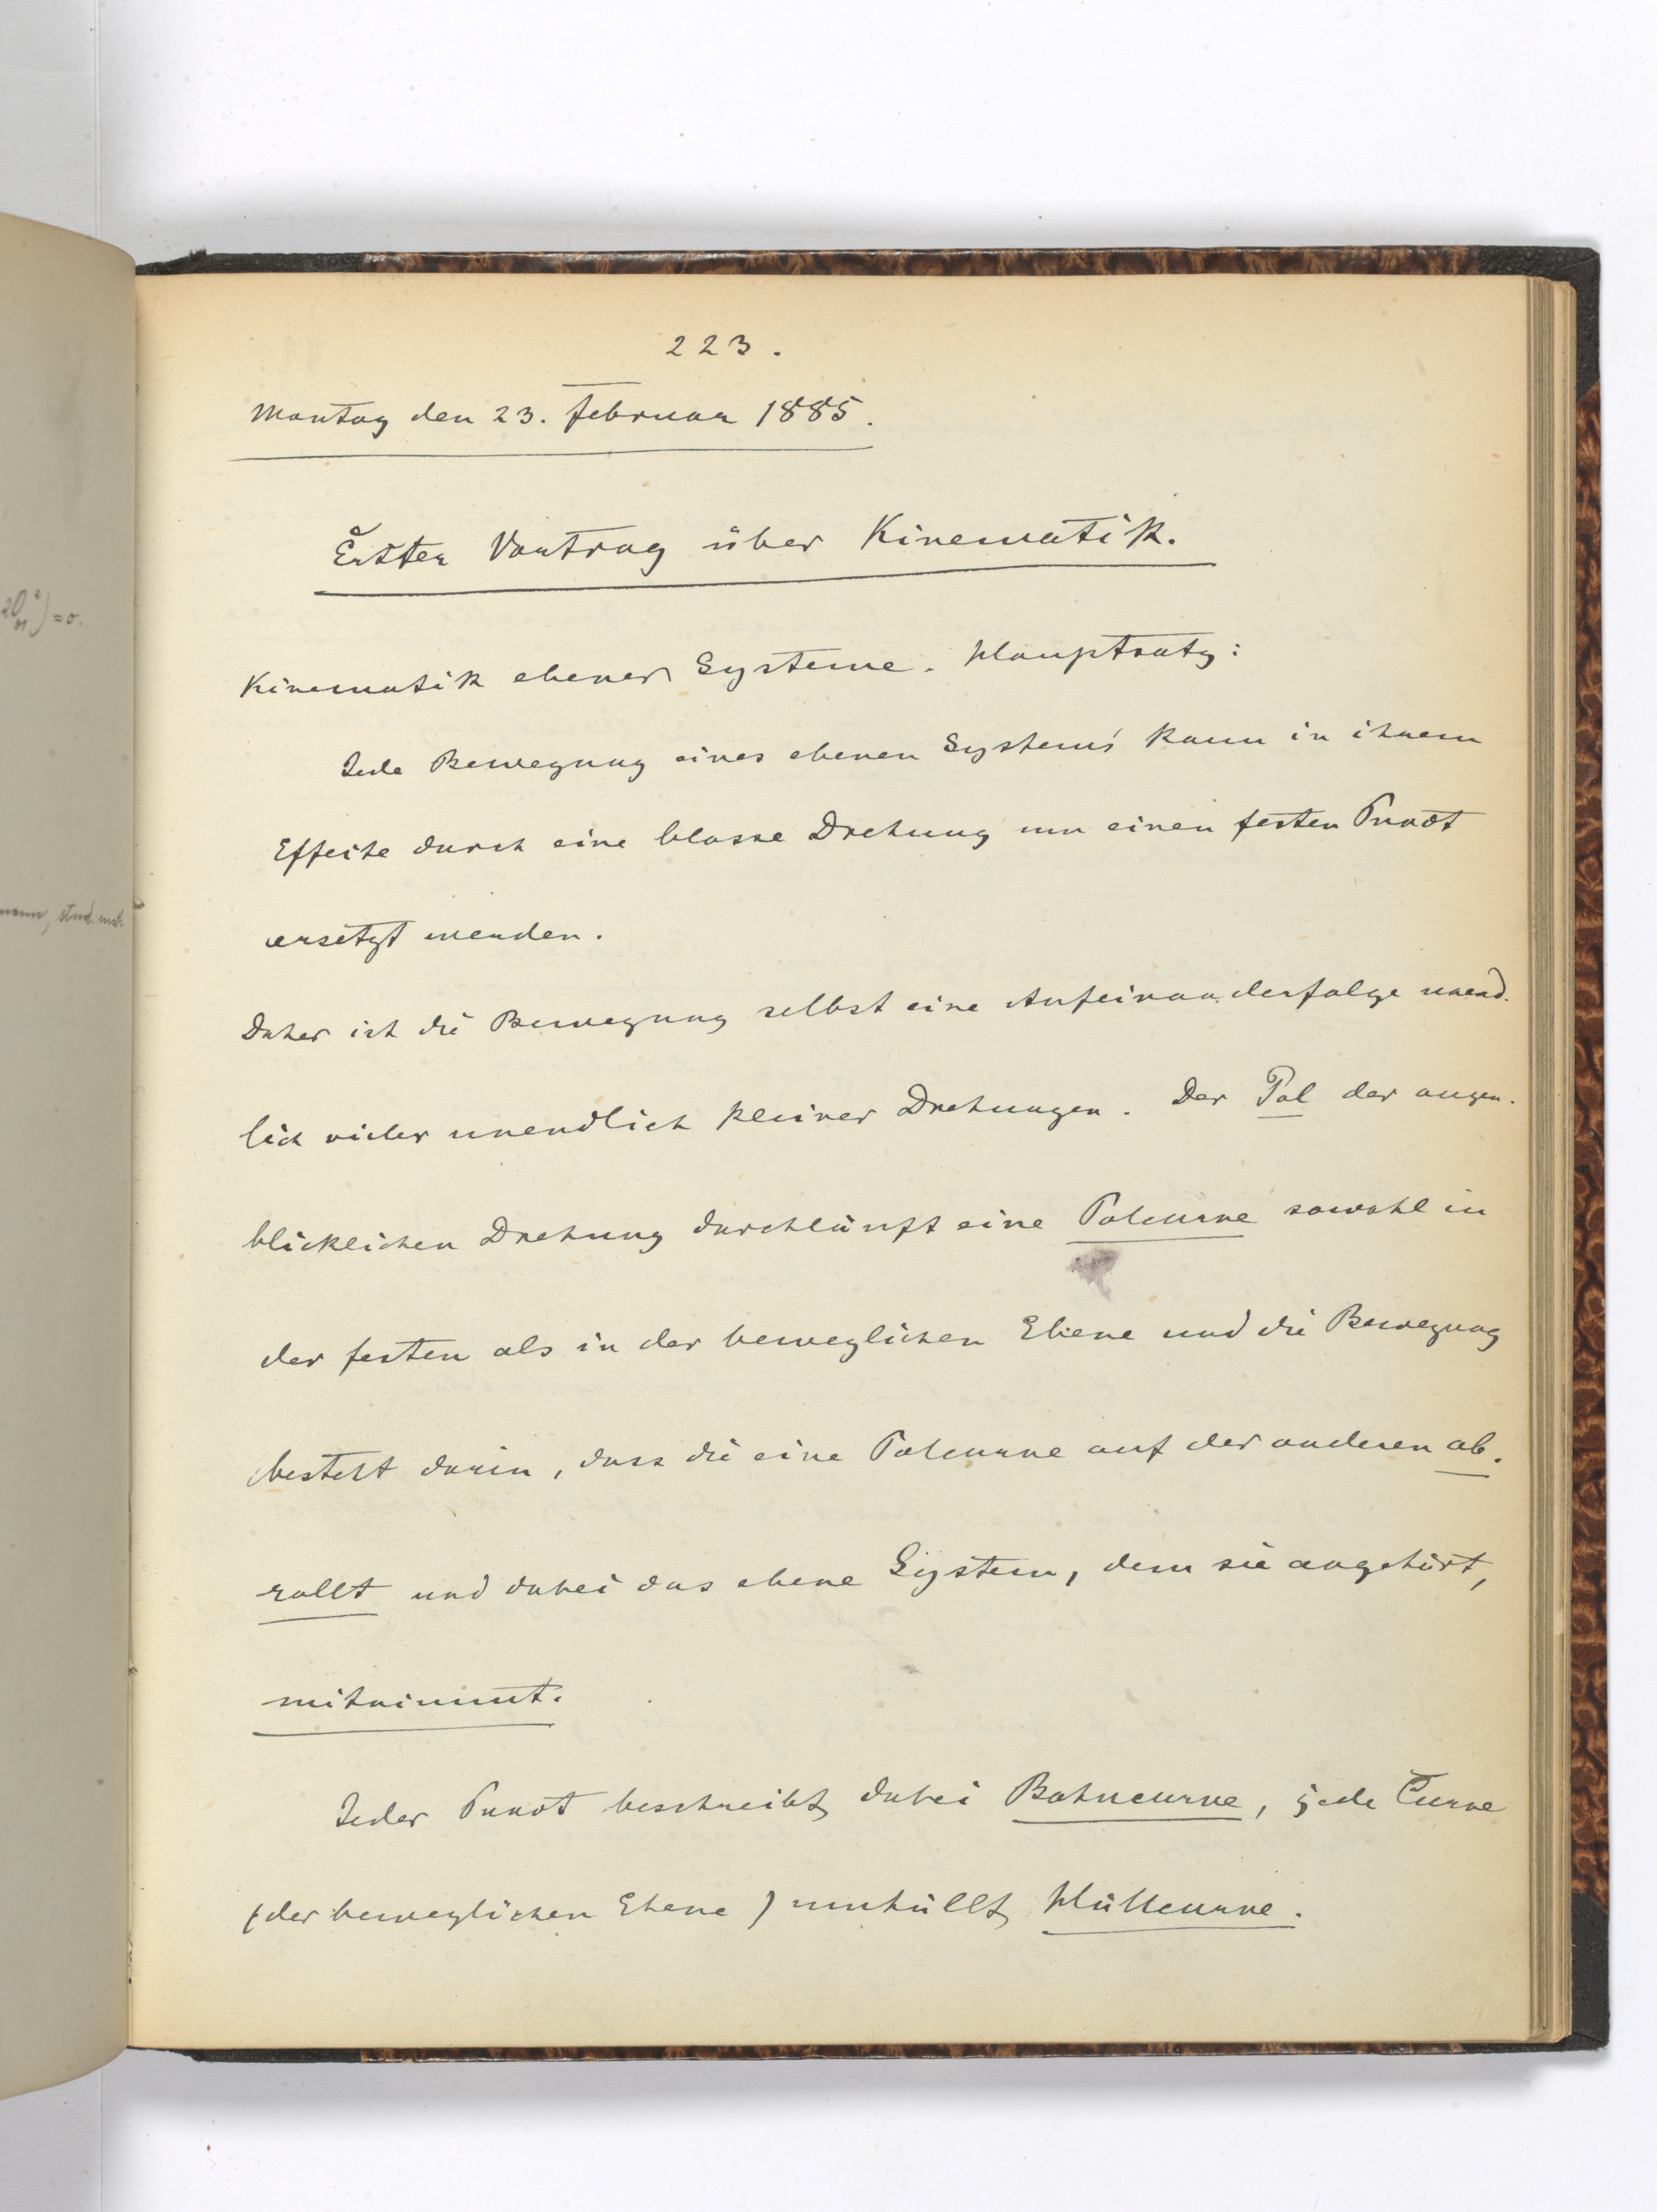 223.
Montag den 23. Februar 1885.
Erster Vortrag über Kinematik.
Kinematik ebener Systeme. Hauptsatz:
Jede Bewegung eines ebenen Systems kann in ihrem
Effecte durch eine blosse Drehung um einen festen Punct
ersetzt werden.
Daher ist die Bewegung selbst eine Aufeinanderfolge unend-
lich vieler unendlich kleiner Drehungen. Der Pol der augen-
blicklichen Drehung durchläuft eine Polcurve sowohl in
der festen als in der beweglichen Ebene und die Bewegung
besteht darin, dass die eine Polcurve auf der anderen ab-
rollt und dabei das ebene System, dem sie angehört,
mitnimmt.
Jeder Punct beschreibt dabei Bahncurve, jede Curve
(der beweglichen Ebene) umhüllt Hüllcurve.
=0.
stud. math